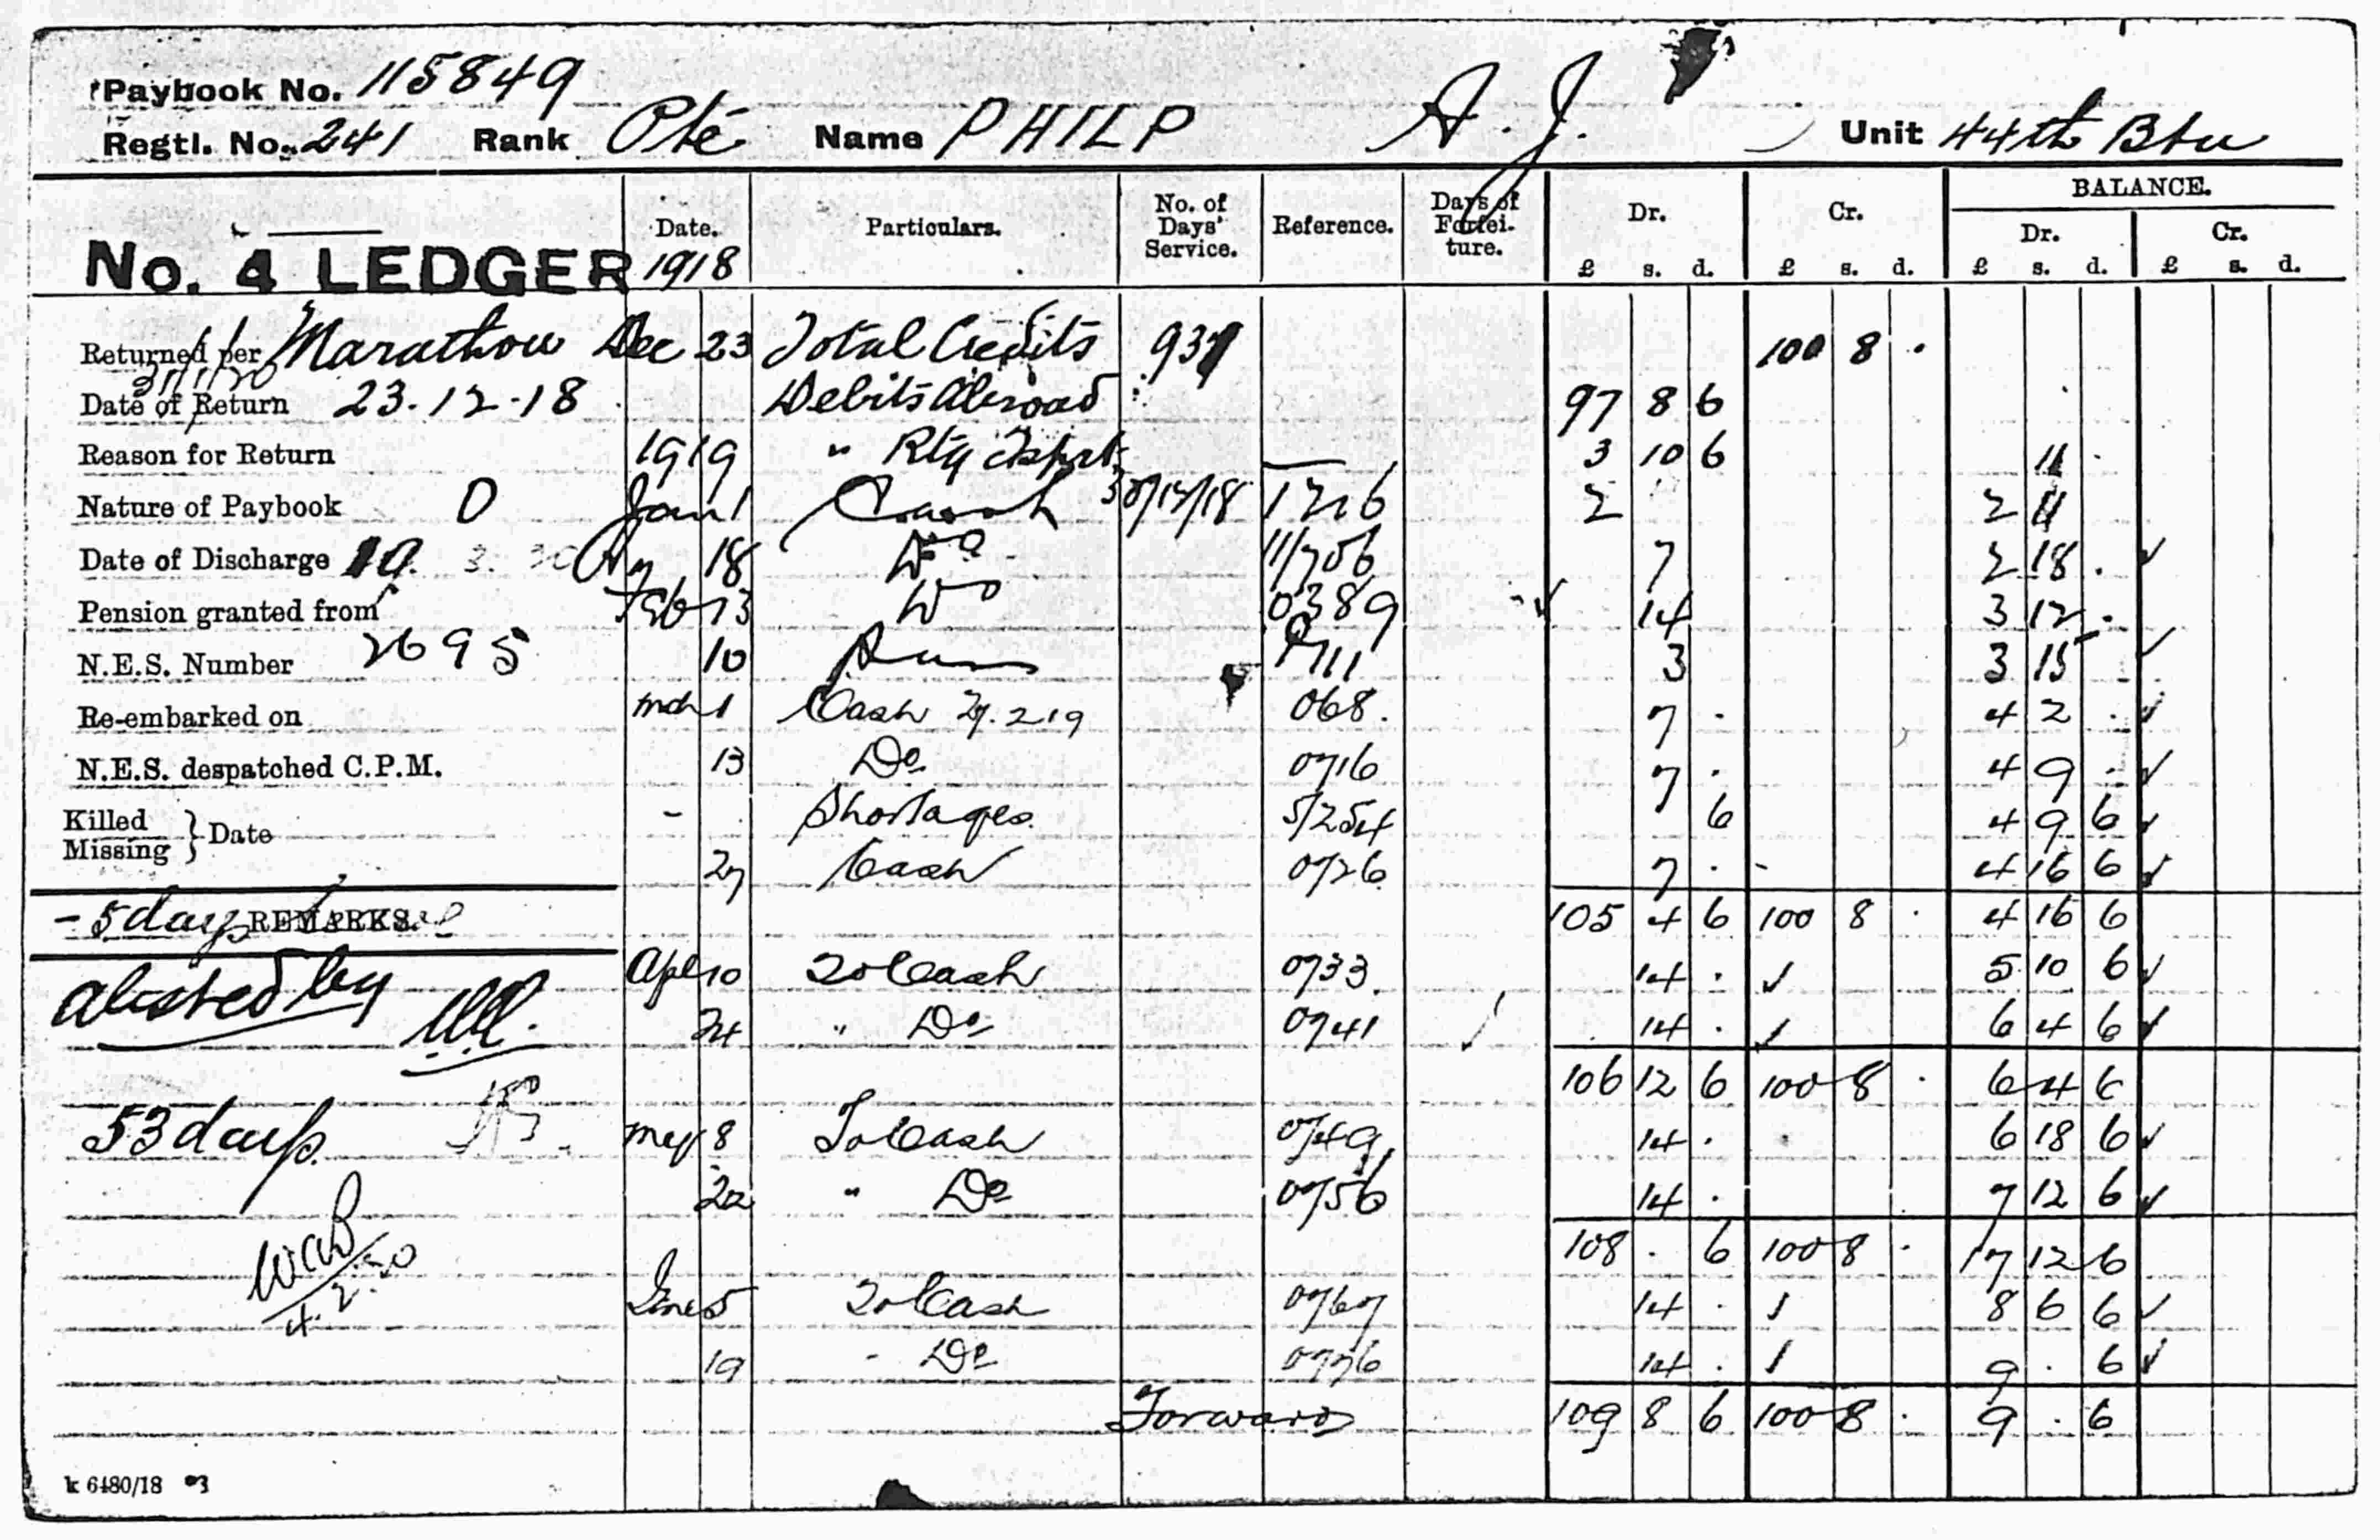 Paybook No. 115849
Regtl. No. 241 Rank Pte Name PHILP A. J. Unit 44th Btn
No. 4 LEDGER Date. 1918 Particulars. No. of Days' Service. Reference. Days of Forfeiture. Dr. £ s. d. Cr. £ s. d. BALANCE. Dr. £ s. d. Cr. £ s. d.
Returned per Marathon Dec 23 Total Credits 937 100 8 .
Date of Return 23.12.18 Debits Abroad 97 8 6
Reason for Return 1919 " 3 10 6 11 .
Nature of Paybook D Jan 1 Cash 30/12/18 1216 2 2 11
Date of Discharge 19. 3. 18 Do 11/706 7 2 18 .
Pension granted from Feb 13 Do 0389 14 3 12 .
N.E.S. Number 2695 10 3 3 15
Re-embarked on Mch 1 Cash 27.2.19 068. 7 . 4 2 .
N.E.S. despatched C.P.M. 13 Do 0716 7 . 4 9 .
Killed Missing } Date - Shortages. 5/254 6 4 9 6
27 Cash 0726 7 . - 4 16 6
- 5 days REMARKS. 105 4 6 100 8 . 4 16 6
by Apl 10 To Cash 0733. 14 . 5 10 6
24 " Do 0741 14 . 6 4 6
106 12 6 100 8 . 6 4 6
53 days. May 8 To Cash 0749 14 . 6 18 6
22 " Do 0756 14 . 7 12 6
108 . 6 100 8 . 7 12 6
4.2.20 June 5 To Cash 0767 14 . 8 6 6
19 - Do 0776 14 . 9 . 6
Forward 109 8 6 100 8 . 9 . 6
k 6480/18